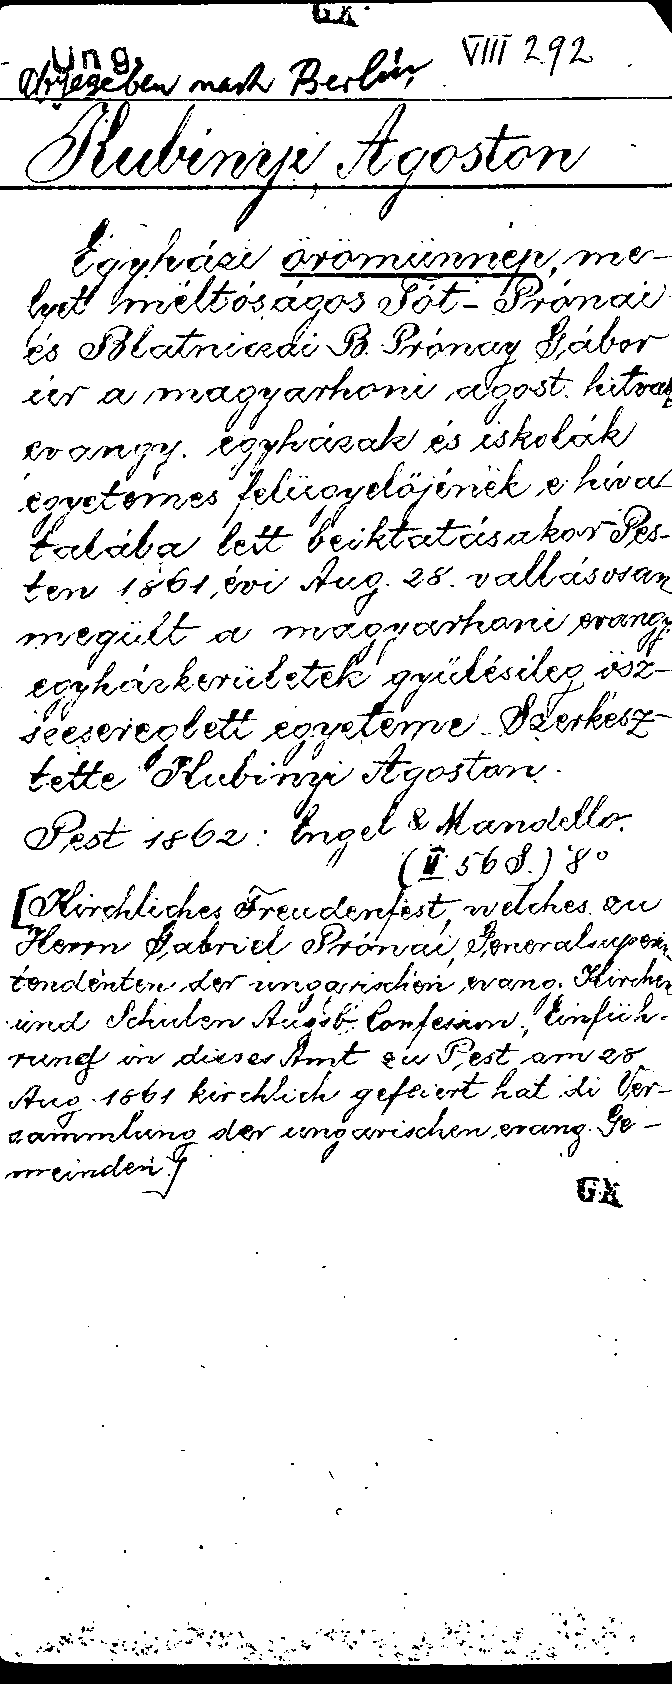 GK
Ung.
Abgegeben nach Berlin
VIII 292
Kubinyi, Ágoston
Egyházi örömünnep, me-
lyet méltóságos Tót-Prónai
és Blatniczai B. Prónay Gábor
úr a magyarhoni ágost. hitval
evangy. egyházak és iskolák
egyetemes felügyelőjének e hiva
talába lett beiktatásakor Pes-
ten 1861, évi Aug. 28. vallásosan
megült a magyarhoni evangy.
egyházkerületek gyülésileg ösz-
szesereglett egyeteme. Szerkesz-
tette Kubinyi Ágoston.
Pest 1862: Engel & Mandello.
(II 56 S.) 8°
[Kirchliches Freudenfest, welches zu
Herrn Gabriel Prónai, Generalsuperin-
tendenten der ungarischen evang. Kirchen
und Schulen Augsb. Confession, Einfüh-
rung in dieses Amt zu Pest am 28
Aug. 1861 kirchlich gefeiert hat di Ver-
sammlung der ungarischen evang. Ge-
meinden.]
GK